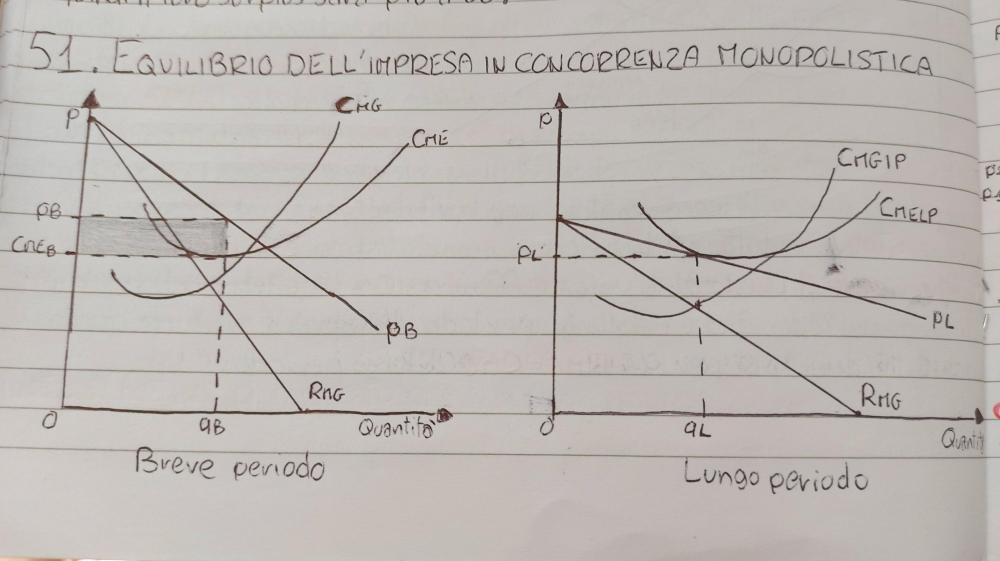 51. EQUILIBRIO DELL'IMPRESA IN CONCORRENZA MONOPOLISTICA
P
CMG
CME
PB
CMEB
PB
RMG
0
qB
Quantità
Breve periodo
P
CMGIP
CMELP
PL
PL
RMG
0
qL
Quantit
Lungo periodo